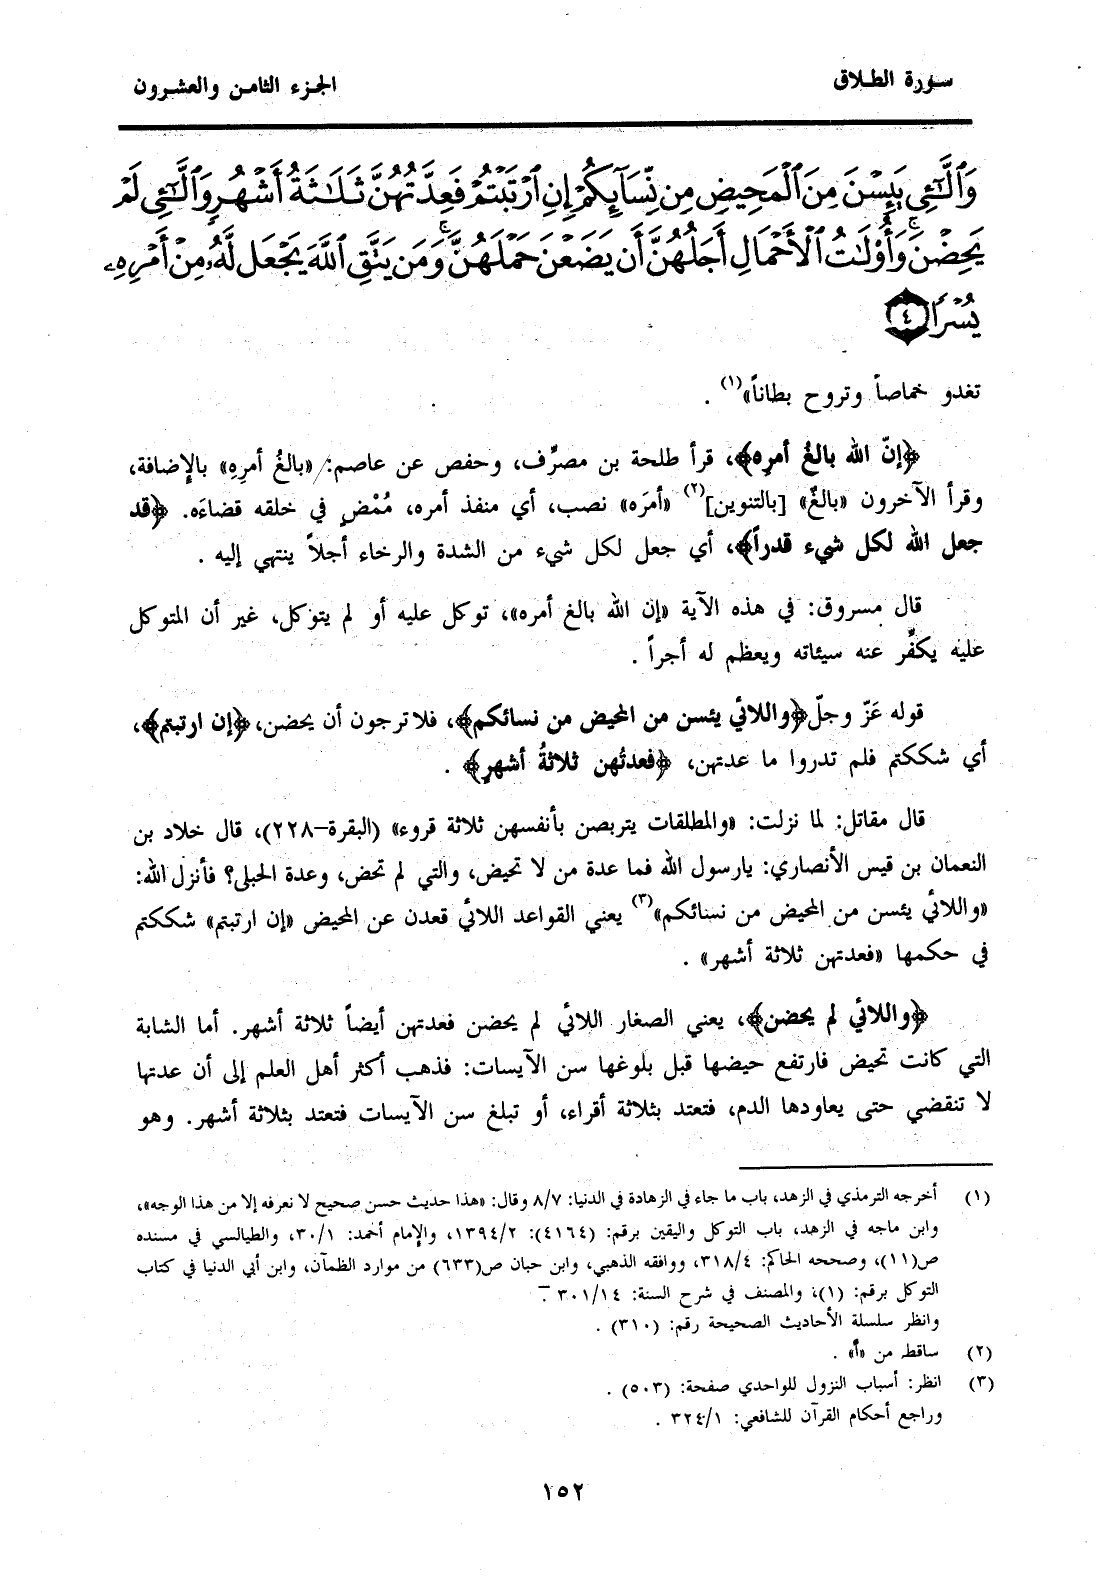 سورة الطلاق
الجزء الثامن والعشرون
وَٱلَّٰٓـِٔي يَئِسۡنَ مِنَ ٱلۡمَحِيضِ مِن نِّسَآئِكُمۡ إِنِ ٱرۡتَبۡتُمۡ فَعِدَّتُهُنَّ ثَلَٰثَةُ أَشۡهُرٖ وَٱلَّٰٓـِٔي لَمۡ
يَحِضۡنَۚ وَأُوْلَٰتُ ٱلۡأَحۡمَالِ أَجَلُهُنَّ أَن يَضَعۡنَ حَمۡلَهُنَّۚ وَمَن يَتَّقِ ٱللَّهَ يَجۡعَل لَّهُۥ مِنۡ أَمۡرِهِۦ
يُسۡرٗا ٤
تغدو خماصاً وتروح بطاناً»(١) .
﴿إنّ الله بالغُ أمرِه﴾، قرأ طلحة بن مصرِّف، وحفص عن عاصم: «بالغُ أمرِهِ» بالإضافة،
وقرأ الآخرون «بالغٌ» [بالتنوين](٢) «أمرَه» نصب، أي منفذ أمره، مُمْضٍ في خلقه قضاءَه. ﴿قد
جعل الله لكل شيء قدراً﴾، أي جعل لكل شيء من الشدة والرخاء أجلاً ينتهي إليه .
قال مسروق: في هذه الآية «إن الله بالغ أمره»، توكل عليه أو لم يتوكل، غير أن المتوكل
عليه يكفِّر عنه سيئاته ويعظم له أجراً .
قوله عَزّ وجلّ ﴿واللائي يئسن من المحيض من نسائكم﴾، فلا ترجون أن يحضن، ﴿إن ارتبتم﴾،
أي شككتم فلم تدروا ما عدتهن، ﴿فعدتُهن ثلاثةُ أشهرٍ﴾ .
قال مقاتل: لما نزلت: «والمطلقات يتربصن بأنفسهن ثلاثة قروء» (البقرة-٢٢٨)، قال خلاد بن
النعمان بن قيس الأنصاري: يارسول الله فما عدة من لا تحيض، والتي لم تحض، وعدة الحبلى؟ فأنزل الله:
«واللائي يئسن من المحيض من نسائكم»(٣) يعني القواعد اللائي قعدن عن المحيض «إن ارتبتم» شككتم
في حكمها «فعدتهن ثلاثة أشهر» .
﴿واللائي لم يحضن﴾، يعني الصغار اللائي لم يحضن فعدتهن أيضاً ثلاثة أشهر. أما الشابة
التي كانت تحيض فارتفع حيضها قبل بلوغها سن الآيسات: فذهب أكثر أهل العلم إلى أن عدتها
لا تنقضي حتى يعاودها الدم، فتعتد بثلاثة أقراء، أو تبلغ سن الآيسات فتعتد بثلاثة أشهر. وهو
(١) أخرجه الترمذي في الزهد، باب ما جاء في الزهادة في الدنيا: ٨/٧ وقال: «هذا حديث حسن صحيح لا نعرفه إلا من هذا الوجه»،
وابن ماجه في الزهد، باب التوكل واليقين برقم: (٤١٦٤): ١٣٩٤/٢، والإمام أحمد: ٣٠/١، والطيالسي في مسنده
ص(١١)، وصححه الحاكم: ٣١٨/٤، ووافقه الذهبي، وابن حبان ص(٦٣٣) من موارد الظمآن، وابن أبي الدنيا في كتاب
التوكل برقم: (١)، والمصنف في شرح السنة: ٣٠١/١٤ .
وانظر سلسلة الأحاديث الصحيحة رقم: (٣١٠) .
(٢) ساقط من «أ» .
(٣) انظر: أسباب النزول للواحدي صفحة: (٥٠٣) .
وراجع أحكام القرآن للشافعي: ٣٢٤/١ .
١٥٢